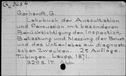 Gerhardt, C.
Lehrbuch der Auscultation
und Percussion mit besonderer
Berücksichtigung der Inspection,
Betastung und Messung der Brust
und des Unterleibes zu diagnosti-
schen Zwecken. 2. Auflage.
Tübingen: Laupp 1871.